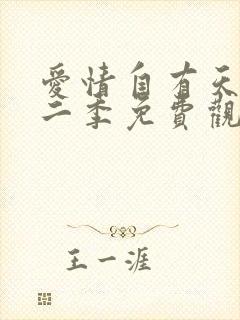 愛情自有天
二季免費觀
王一涯